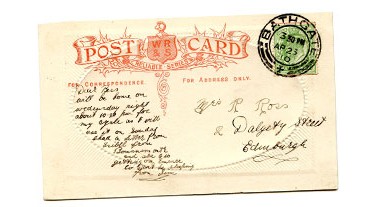 POST CARD
WR
&S
RELIABLE SERIES
FOR CORRESPONDENCE.
FOR ADDRESS ONLY.
BATHGATE
3.50 PM
AP 23
10
Dear
will be home on
wednesday night
about 10.36 pm for
my cycle as I will
use it on Sunday
had a letter from
from
Bournemouth
and she is
getting on
from
Miss R Ross
8 Dalgety Street
Edinburgh